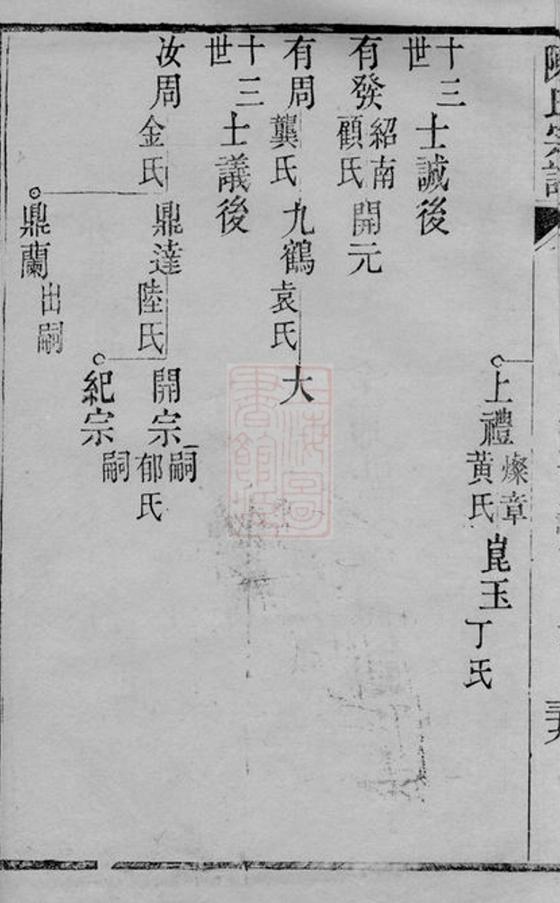 陳氏宗譜
三九
上禮 燦章 黄氏 崑玉 丁氏
十三世 士誠後
有發 紹南 顧氏 開元
有周 龔氏 九鶴 袁氏 大
十三世 士議後
汝周 金氏 鼎達 陸氏 開宗 嗣 郁氏
紀宗 嗣
鼎蘭 出嗣
上海圖書館藏